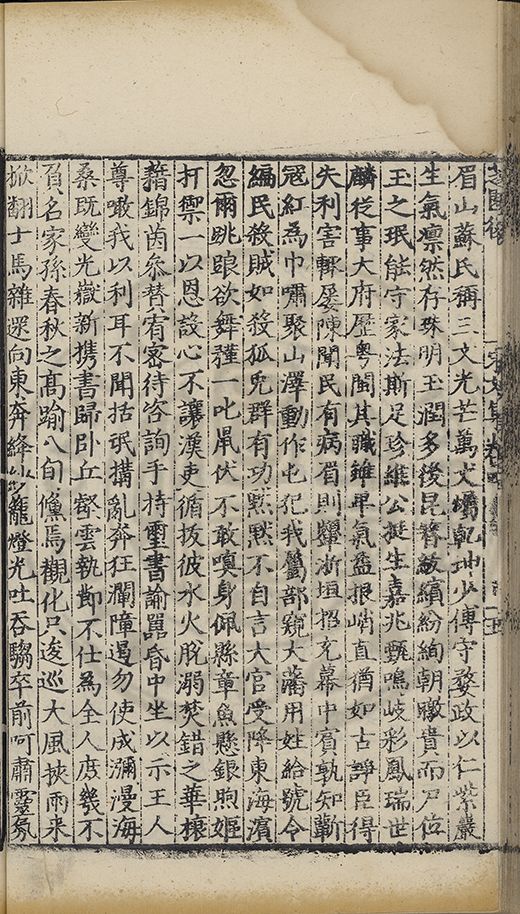 眉山蘇氏稱三文光芒萬丈燭乾坤少傅守婺政以仁紫巖
生氣凛然存珠明玉潤多後昆簪紱繽紛絢朝暾貴而尸位
玉之珉能守家法斯足珍維公挺生嘉兆甄鳴岐彩鳳瑞世
麟從事大府歷粤閩其職雖卑氣益振峭直猶如古諍臣得
失利害屡陳聞民有病眉則顰浙垣招充幕中賓孰知蘄
冦紅為巾嘯聚山澤動作屯犯我部窺大藩用姓給號令
編民殺賊如殺狐兎群有功黙黙不自言大官受降東海濱
忽爾跳踉欲舞一叱鼠伏不敢嗅身佩縣章魚懸銀煦嫗
打禦一以恩設心不讓漢吏循拔彼水火脫溺焚錯之華榱
藉錦茵叅替宥密待咨詢手持璽書諭嚚昏中坐以示王人
尊啖我以利耳不聞括珉搆亂奔狂瀾障遏勿使成瀰漫海
桑既變光嶽新携書歸卧丘壑雲執節不仕為全人庶幾不
負名家孫春秋之高踰八旬儵焉觀化只逡巡大風挾雨来
掀翻士馬雜遝向東奔絳紗籠燈光吐吞騶卒前呵肅靈氛